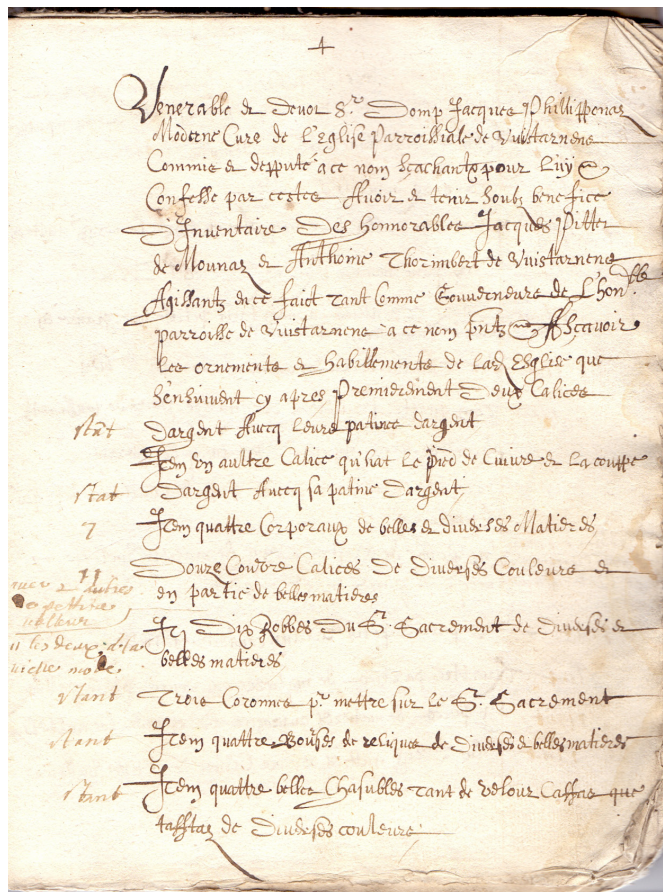 4
Venerable et Devot Sr. Domp Jacques Phillippenaz
Moderne Cure de L'Eglise Parroissiale de Vuistarnens
Commis et depputé a ce nom Sçachantz pour Luy et
Confesse par cestes Avoir et tenir soubz benefice
D'Inventaire Des honnorables Jacques Pitter
de Mounaz et Anthoine Thorimbert de Vuistarnens
Agissantz en ce faict Tant Comme Gouverneurs de L'honble
Parroisse de Vuistarnens a ce nom pntz et Asçavoir
Les ornements et habillements de lad. Esglise que
s'ensuivent cy apres Premierement Deux Calices
stat Dargent Avecq leurs patines dargent
Item vn aultre Calice qu'hat le pied de Cuivre et la couppe
stat Dargent Avecq sa patine Dargent
7 Item quattre Corporaux de belles et diverses Matieres
11 Douze Couvre Calices De Diverses Couleurs et
en partie de belles matieres
11 les deux a la
Dix Robbes Du St. Sacrement de Diverses et
mode
belles matieres
stant Trois Coronnes pr mettre sur le St. Sacrement
stant Item quattre Bourses de reliques de Diverses et belles matieres
stant Item quattre belles Chasubles Tant de velour Caffas que
taffetaz de Diverses couleurs